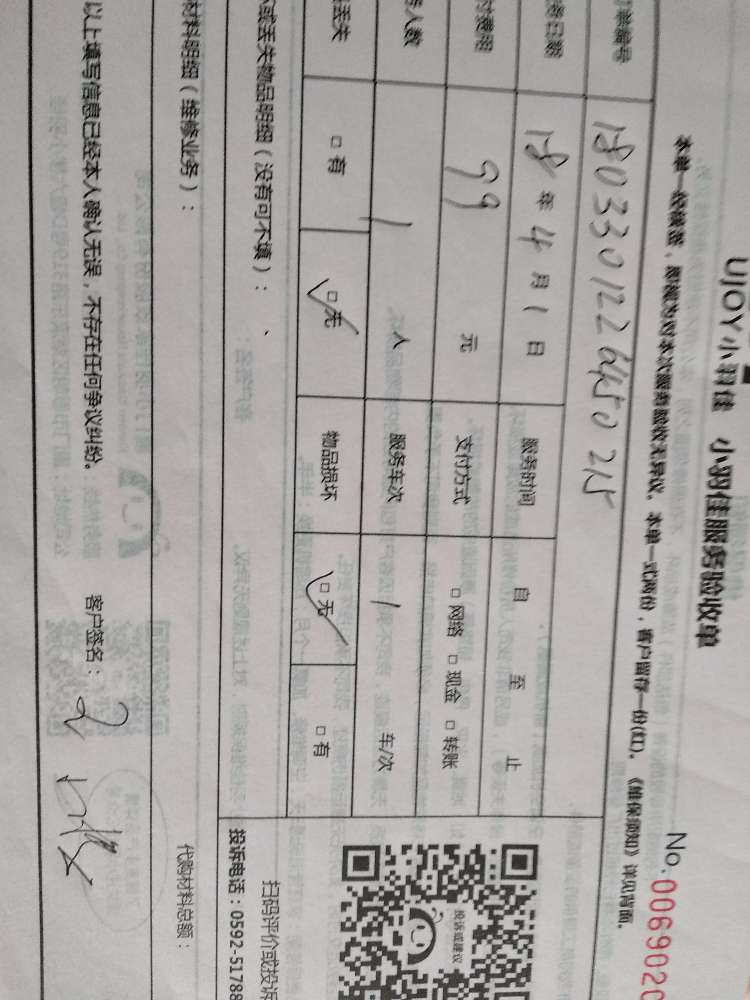 UJOY小羽佳 小羽佳服务验收单
No.0069020
本单一经被签，即视为对本次服务验收无异议。本单一式两份，客户留存一份(红)。《维保须知》详见背面。
单编号 18033012264450215
务日期 18年4月1日 服务时间 自 至 止
付费用 99 元 支付方式 □网络 □现金 □转账
人数 1 人 服务车次 1 车/次
丢失 □有 □无 物品损坏 □无 □有
或丢失物品明细（没有可不填）：
投诉或建议
扫码评价或投诉
投诉电话：0592-51788
材料明细（维修业务）：
代购材料总额：
以上填写信息已经本人确认无误，不存在任何争议纠纷。 客户签名：